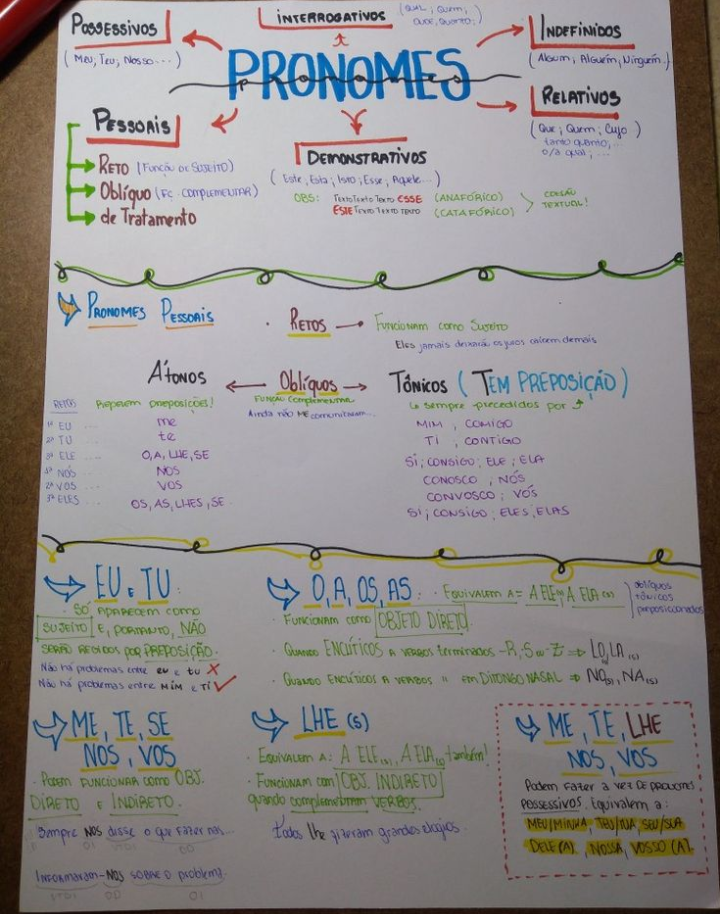 POSSESSIVOS
(MEU, TEU, NOSSO...)
INTERROGATIVOS
(QUAL, QUEM,
QUE, QUANTO,)
INDEFINIDOS
(Algum, Alguém, Ninguém..)
PRONOMES
RELATIVOS
(QUE, QUEM, CUJO)
tanto quanto, ..
o/a qual, ...
PESSOAIS
RETO (FUNÇÃO DE SUJEITO)
OBLÍQUO (FÇ COMPLEMENTAR)
de TRATAMENTO
DEMONSTRATIVOS
(Este, Esta, Isto, Esse, Aquele...)
OBS: TEXTO TEXTO TEXTO ESSE (ANAFÓRICO)
ESTE TEXTO TEXTO TEXTO (CATAFÓRICO)
COESÃO
TEXTUAL!
PRONOMES PESSOAIS
RETOS → FUNCIONAM COMO SUJEITO
Eles jamais deixarão os juros caírem demais
ÁTONOS ← OBLÍQUOS → TÔNICOS (TEM PREPOSIÇÃO)
Repelem preposições!
FUNÇÃO Complementar
Ainda não ME comunicaram...
sempre precedidos por
RETOS
1ª EU ... me
2ª TU ... te
3ª ELE ... O, A, LHE, SE
1ª NÓS ... NOS
2ª VÓS ... VOS
3ª ELES ... OS, AS, LHES, SE
MIM, COMIGO
TI, CONTIGO
SI; CONSIGO; ELE; ELA
CONOSCO, NÓS
CONVOSCO; VÓS
SI; CONSIGO; ELES, ELAS
EU E TU:
· SÓ APARECEM COMO
SUJEITO E, PORTANTO, NÃO
SERÃO REGIDOS POR PREPOSIÇÃO.
Não há problemas entre eu e tu X
Não há problemas entre MIM e TI ✓
O, A, OS, AS: · EQUIVALEM A = A ELE(s), A ELA(s)
oblíquos
tônicos
preposicionados
· FUNCIONAM COMO OBJETO DIRETO
· QUANDO ENCLÍTICOS A VERBOS TERMINADOS -R, S ou -Z ⇒ LO, LA(s)
· QUANDO ENCLÍTICOS A VERBOS " EM DITONGO NASAL ⇒ NO(s), NA(s)
ME, TE, SE
NOS, VOS
· PODEM FUNCIONAR COMO OBJ.
DIRETO E INDIRETO.
Sempre NOS disse o que fazer nas...
OI VTDI OD
INFORMARAM-NOS SOBRE O problema.
VTDI OD OI
LHE (S)
· EQUIVALEM A: A ELE(s), A ELA(s) também!
· FUNCIONAM com OBJ. INDIRETO
quando complementam VERBOS.
todos lhe fizeram grandes elogios
ME, TE, LHE
NOS, VOS
Podem fazer a vez DE PRONOMES
POSSESSIVOS. Equivalem a:
MEU/MINHA, TEU/TUA, SEU/SUA
DELE(A), NOSSA, VOSSO (A).